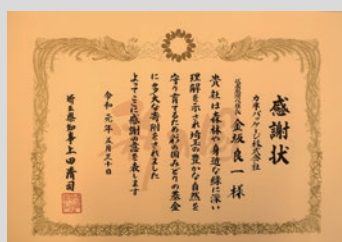 感謝状
カネパッケージ株式会社
代表取締役社長 金坂良一様
貴社は森林や身近な緑に深い
理解を示され埼玉の豊かな自然を
守り育てるため彩の国みどりの基金
に多大な寄附をされました
よってここに感謝の意を表します
令和元年五月三十日
埼玉県知事 上田清司